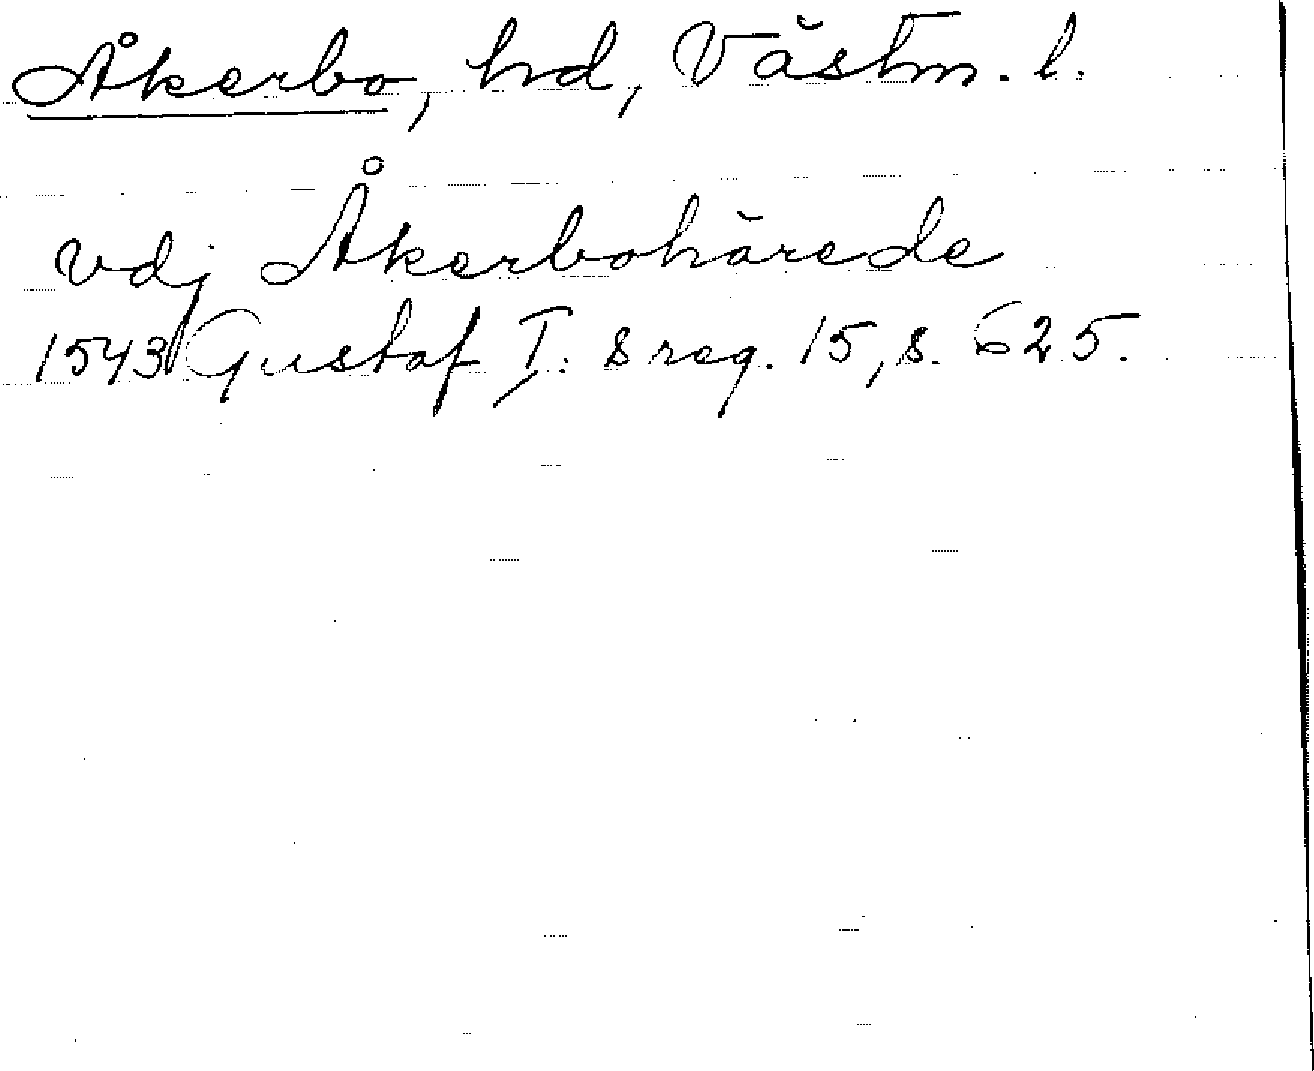 Åkerbo, hd, Västm. l.
vdj Åkerbohärede
1543 Gustaf I:s reg. 15, s. 625.